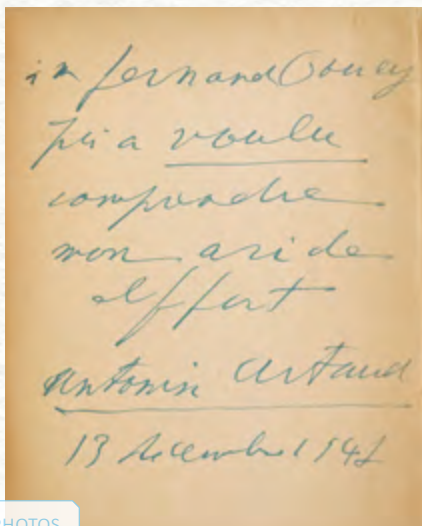 à m fernand Pouey
qui a voulu
comprendre
mon aride
effort
antonin artaud
13 decembre 1947
PHOTOS